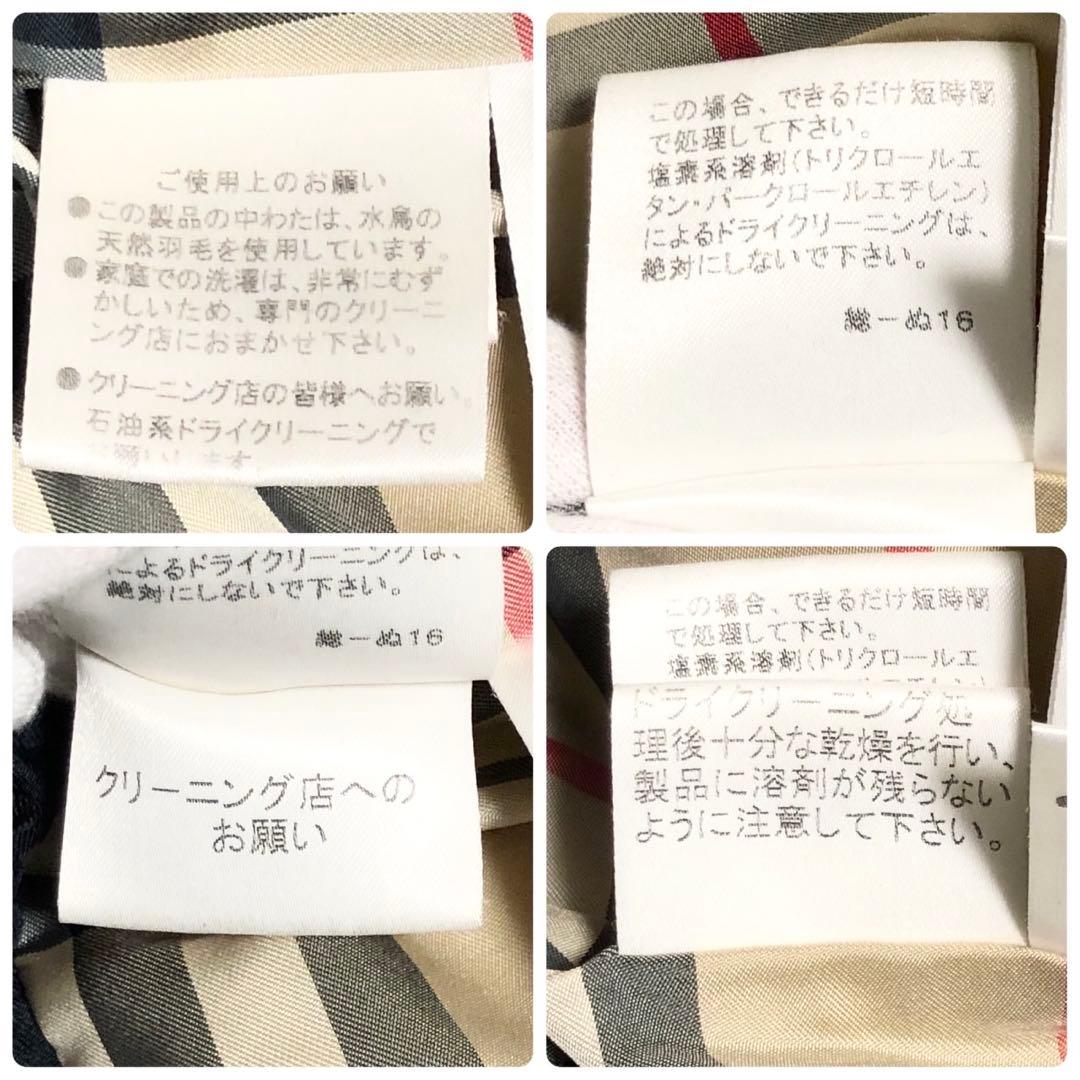 ご使用上のお願い
●この製品の中わたは、水鳥の
天然羽毛を使用しています。
●家庭での洗濯は、非常にむず
かしいため、専門のクリーニ
ング店におまかせ下さい。
●クリーニング店の皆様へお願い。
石油系ドライクリーニングで
お願いします
この場合、できるだけ短時間
で処理して下さい。
塩素系溶剤(トリクロールエ
タン・パークロールエチレン)
によるドライクリーニングは、
絶対にしないで下さい。
ー ぬ16
によるドライクリーニングは、
絶対にしないで下さい。
ー ぬ16
クリーニング店への
お願い
この場合、できるだけ短時間
で処理して下さい。
塩素系溶剤(トリクロールエ
ドライクリーニング処
理後十分な乾燥を行い、
製品に溶剤が残らない
ように注意して下さい。